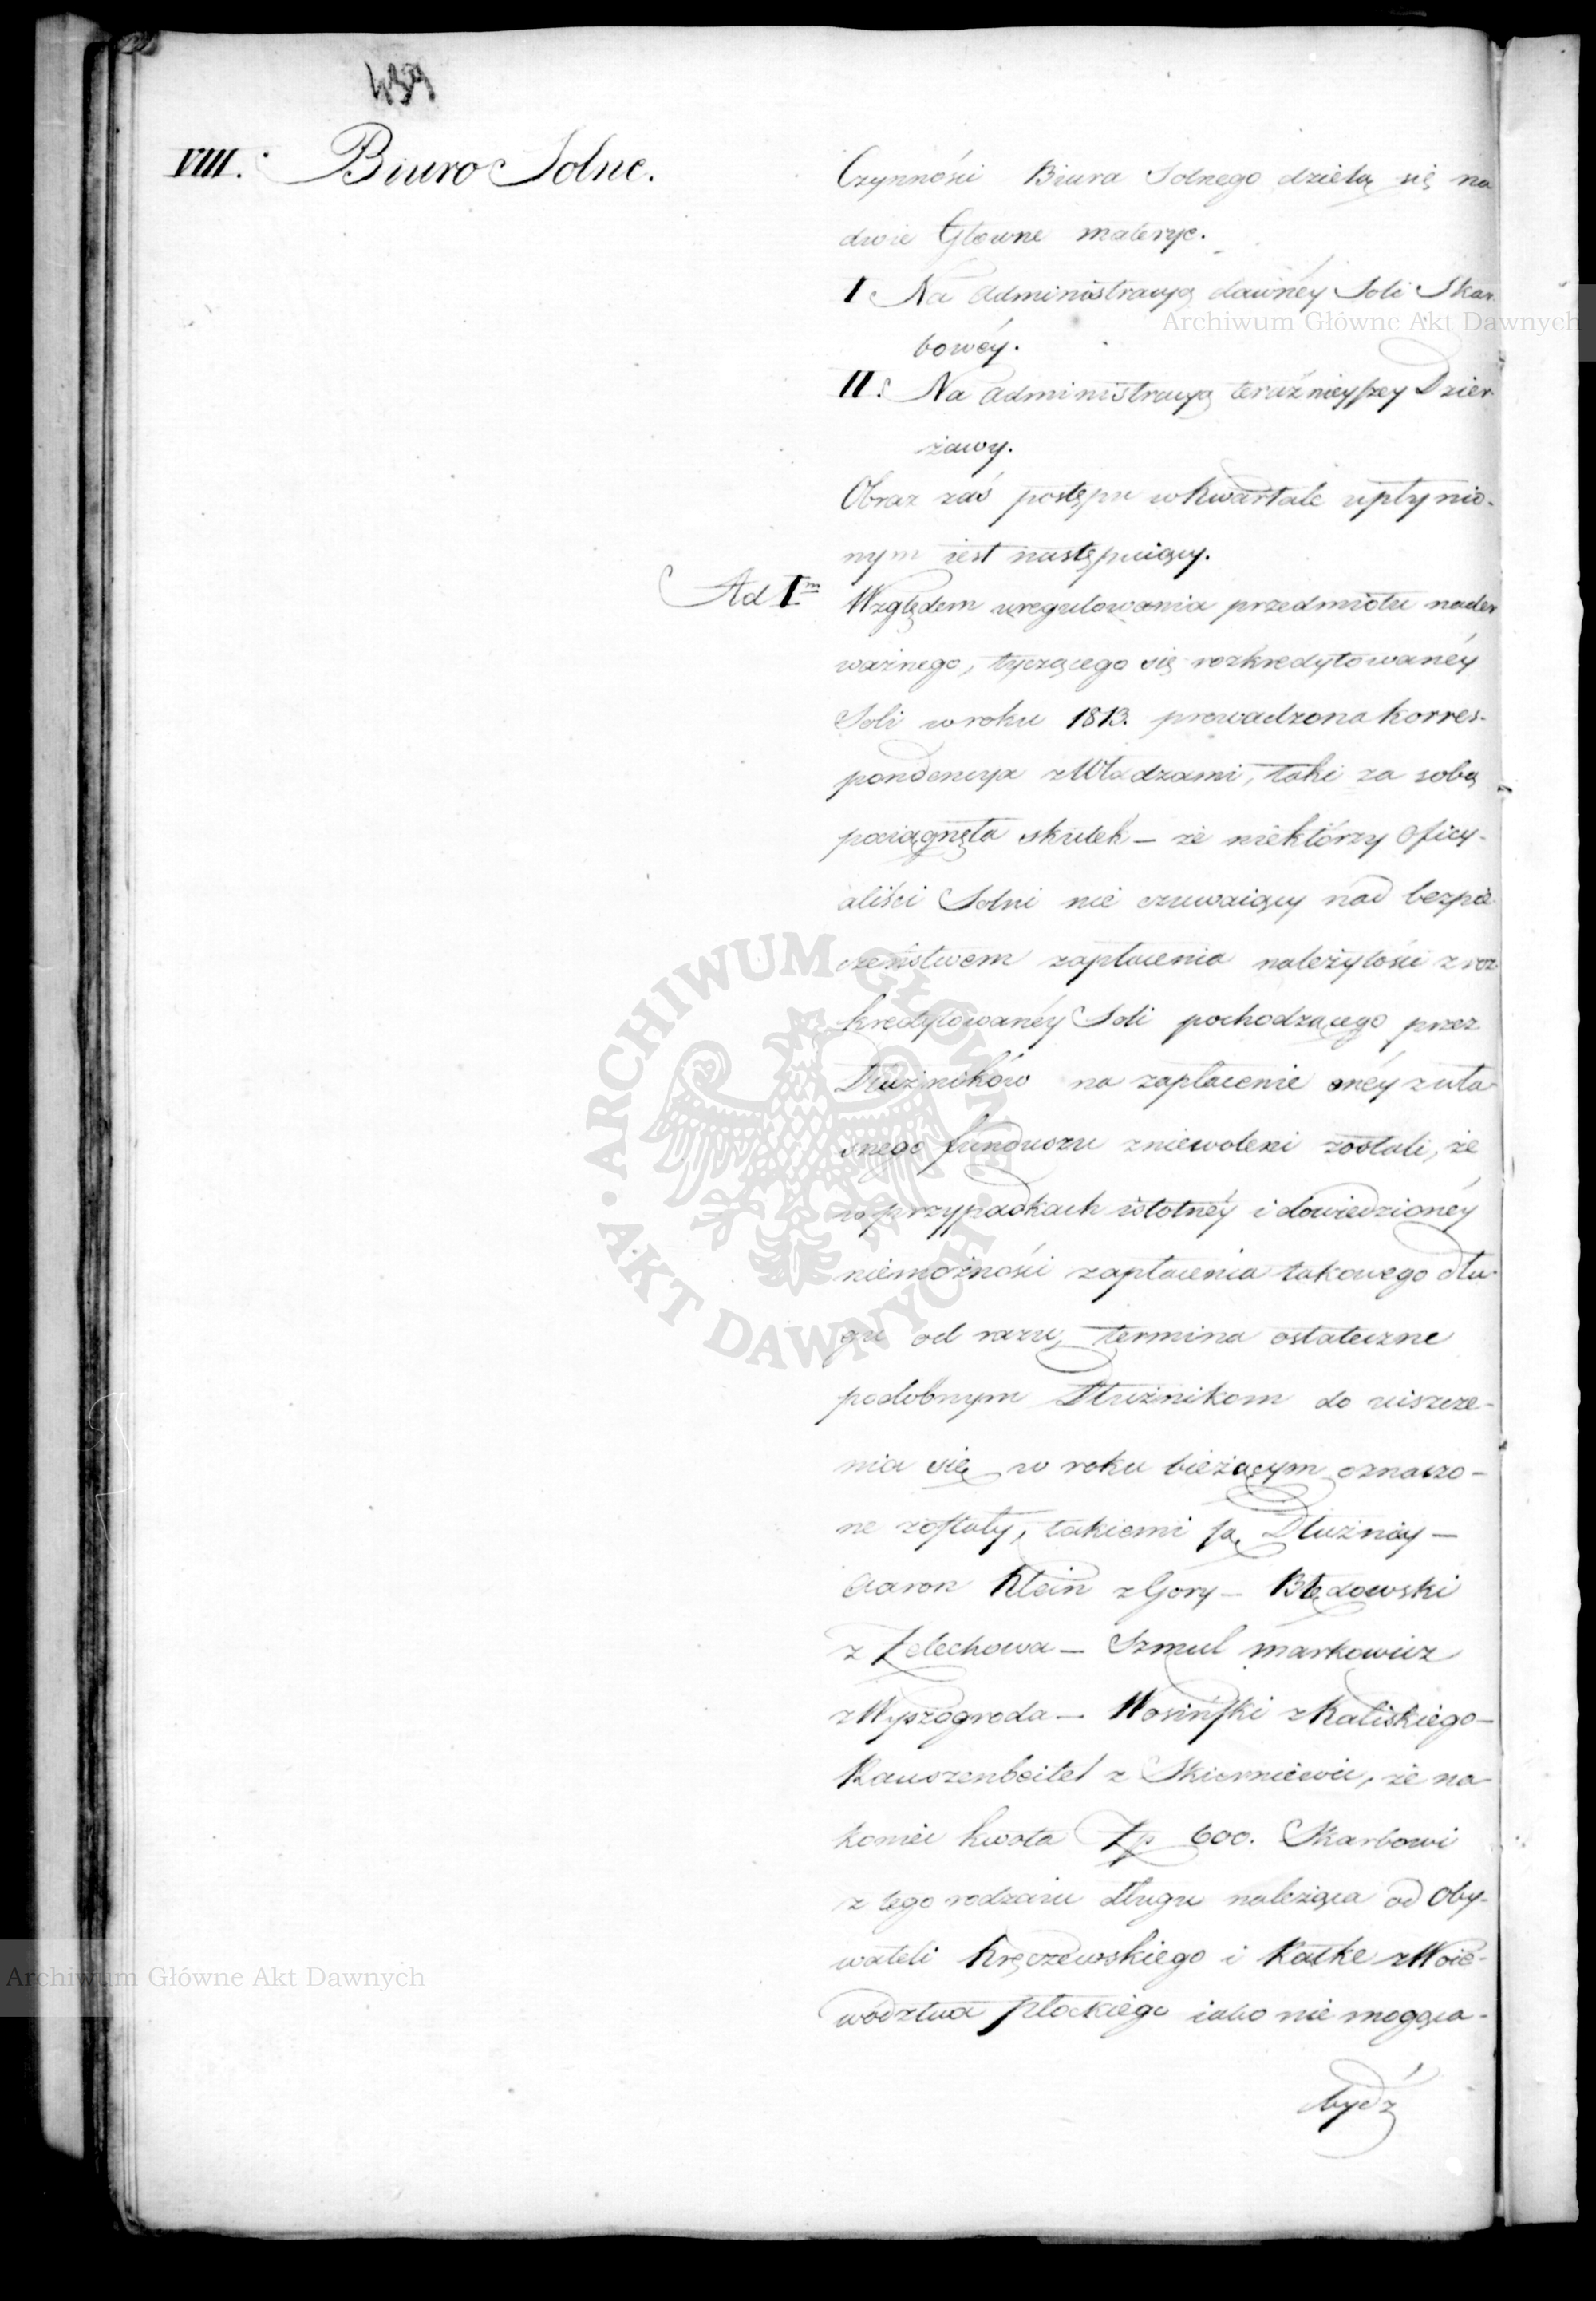 459
VIII. Biuro Solne.
Czynności Biura Solnego dzielą się na
dwie Główne materye.
I. Na administracyą dawnéy Soli Skar-
bowéy.
II. Na administracyą teraźnieyszey Dzier-
żawy.
Obraz zaś postępu w kwartale upłynio-
nym iest następuiący.
Ad I<sup>m</sup> Względem uregulowania przedmiotu nader
ważnego, tyczącego się rozkredytowanéy
Soli w roku 1813. prowadzona korres-
pondencya z Władzami, taki za sobą
pociągnęła skutek – że niektórzy Oficy-
aliści Solni nie czuwaiący nad bezpie-
czeństwem zapłacenia należytości z roz-
kredytowanéy Soli pochodzącego przez
Dłużników na zapłacenie onéy z wła-
snego funduszu zniewoleni zostali, że
w przypadkach istotnéy i dowiedzionéy
niemożności zapłacenia takowego dłu-
gu od razu, termina ostateczne
podobnym Dłużnikom do uiszcze-
nia się w roku bieżącym oznaczo-
ne zostały, takiemi są Dłużnicy –
Aaron Klein z Góry – Błędowski
z Żelechowa – Szmul Markowicz
z Wyszogroda – Wosiński z Kaliskiego –
Rauszenbeitel z Skierniewic, że na-
koniec kwota Zp 600. Skarbowi
z tego rodzaiu długu należąca od Oby-
wateli Kręczewskiego i Katke z Woie-
wództwa Płockiego iako nie mogąca-
bydź
Archiwum Główne Akt Dawnych
Archiwum Główne Akt Dawnych
ARCHIWUM GŁÓWNE AKT DAWNYCH